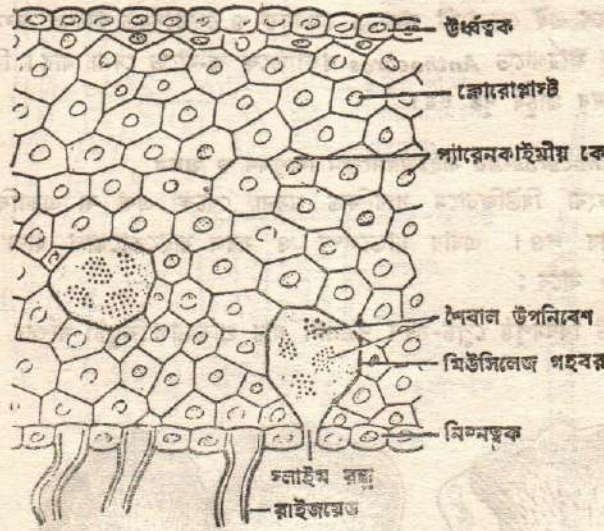 ঊর্ধ্বত্বক
ক্লোরোপ্লাস্ট
প্যারেনকাইমীয় কো
শৈবাল উপনিবেশ
মিউসিলেজ গহবর
নিম্নত্বক
স্লাইম রন্ধ্র
রাইজয়েড